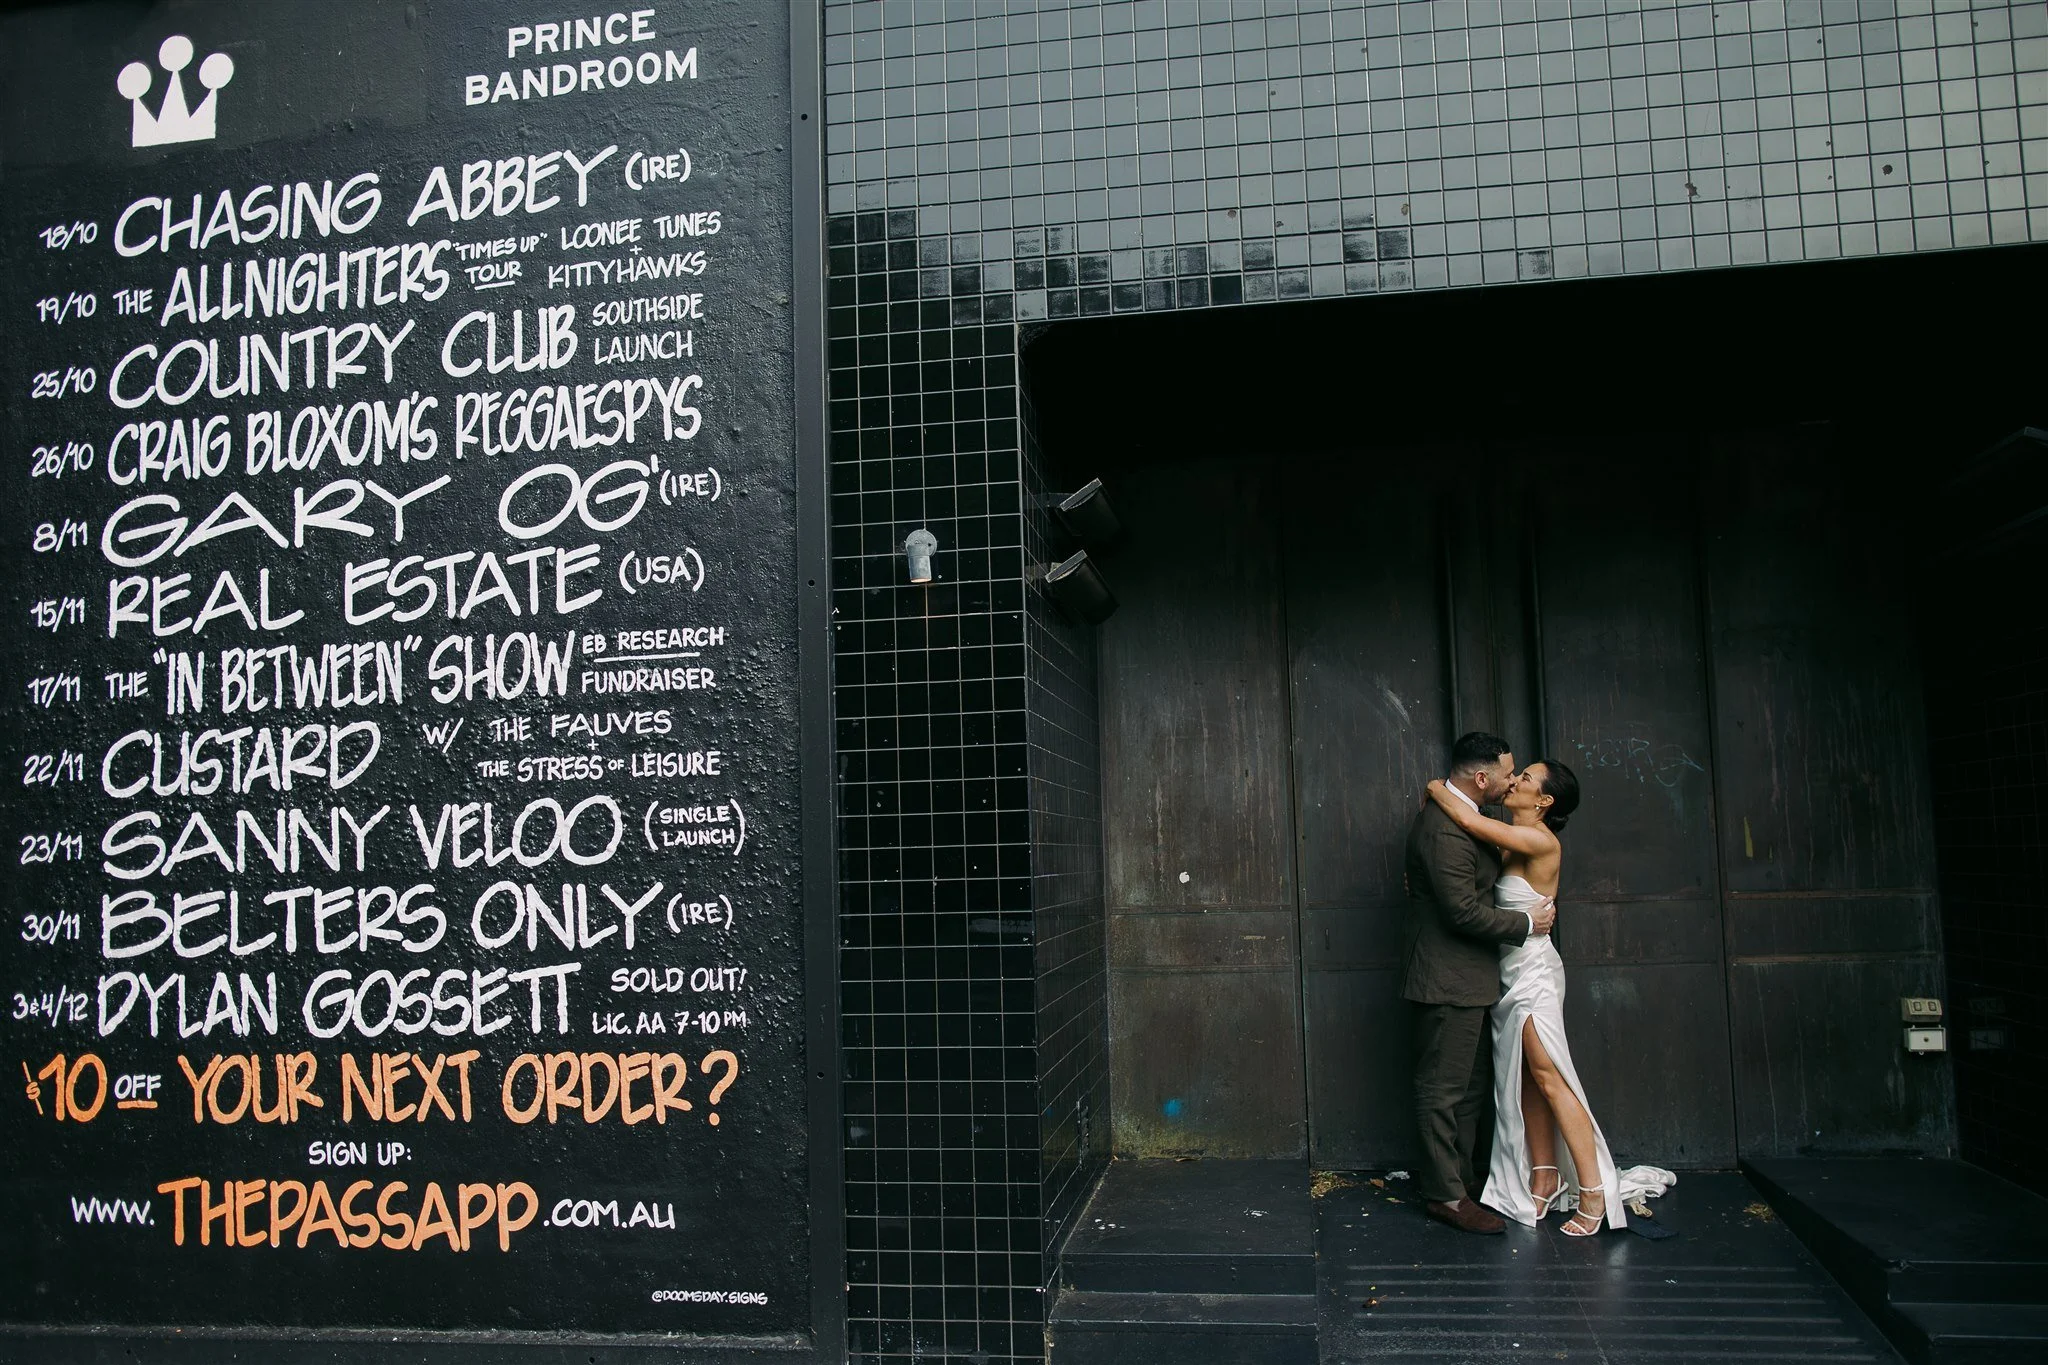 PRINCE
BANDROOM
18/10 CHASING ABBEY (IRE)
19/10 THE ALLNIGHTERS "TIMES UP" TOUR LOONEE TUNES + KITTYHAWKS
25/10 COUNTRY CLUB SOUTHSIDE LAUNCH
26/10 CRAIG BLOXOM'S REGGAESPYS
8/11 GARY OG' (IRE)
15/11 REAL ESTATE (USA)
17/11 THE "IN BETWEEN" SHOW EB RESEARCH FUNDRAISER
22/11 CUSTARD W/ THE FAUVES + THE STRESS OF LEISURE
23/11 SANNY VELOO (SINGLE LAUNCH)
30/11 BELTERS ONLY (IRE)
3&4/12 DYLAN GOSSETT SOLD OUT! LIC. AA 7-10 PM
$10 OFF YOUR NEXT ORDER?
SIGN UP:
WWW.THEPASSAPP.COM.AU
@DOOMSDAY.SIGNS